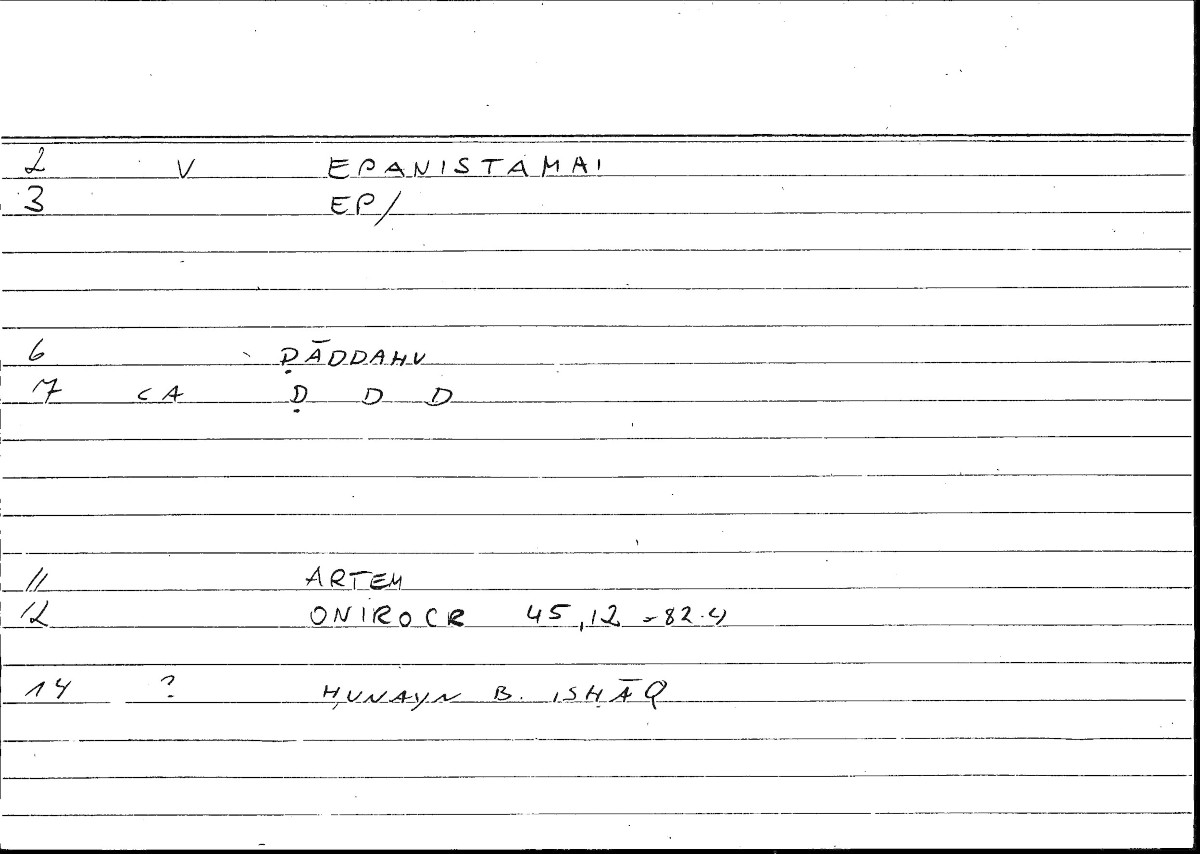 2 V EPANISTAMAI
3 EP/
6 ḌĀDDAHU
7 CA Ḍ D D
11 ARTEM
12 ONIROCR 45,12 - 82.4
14 ? ḤUNAYN B. ISḤĀQ